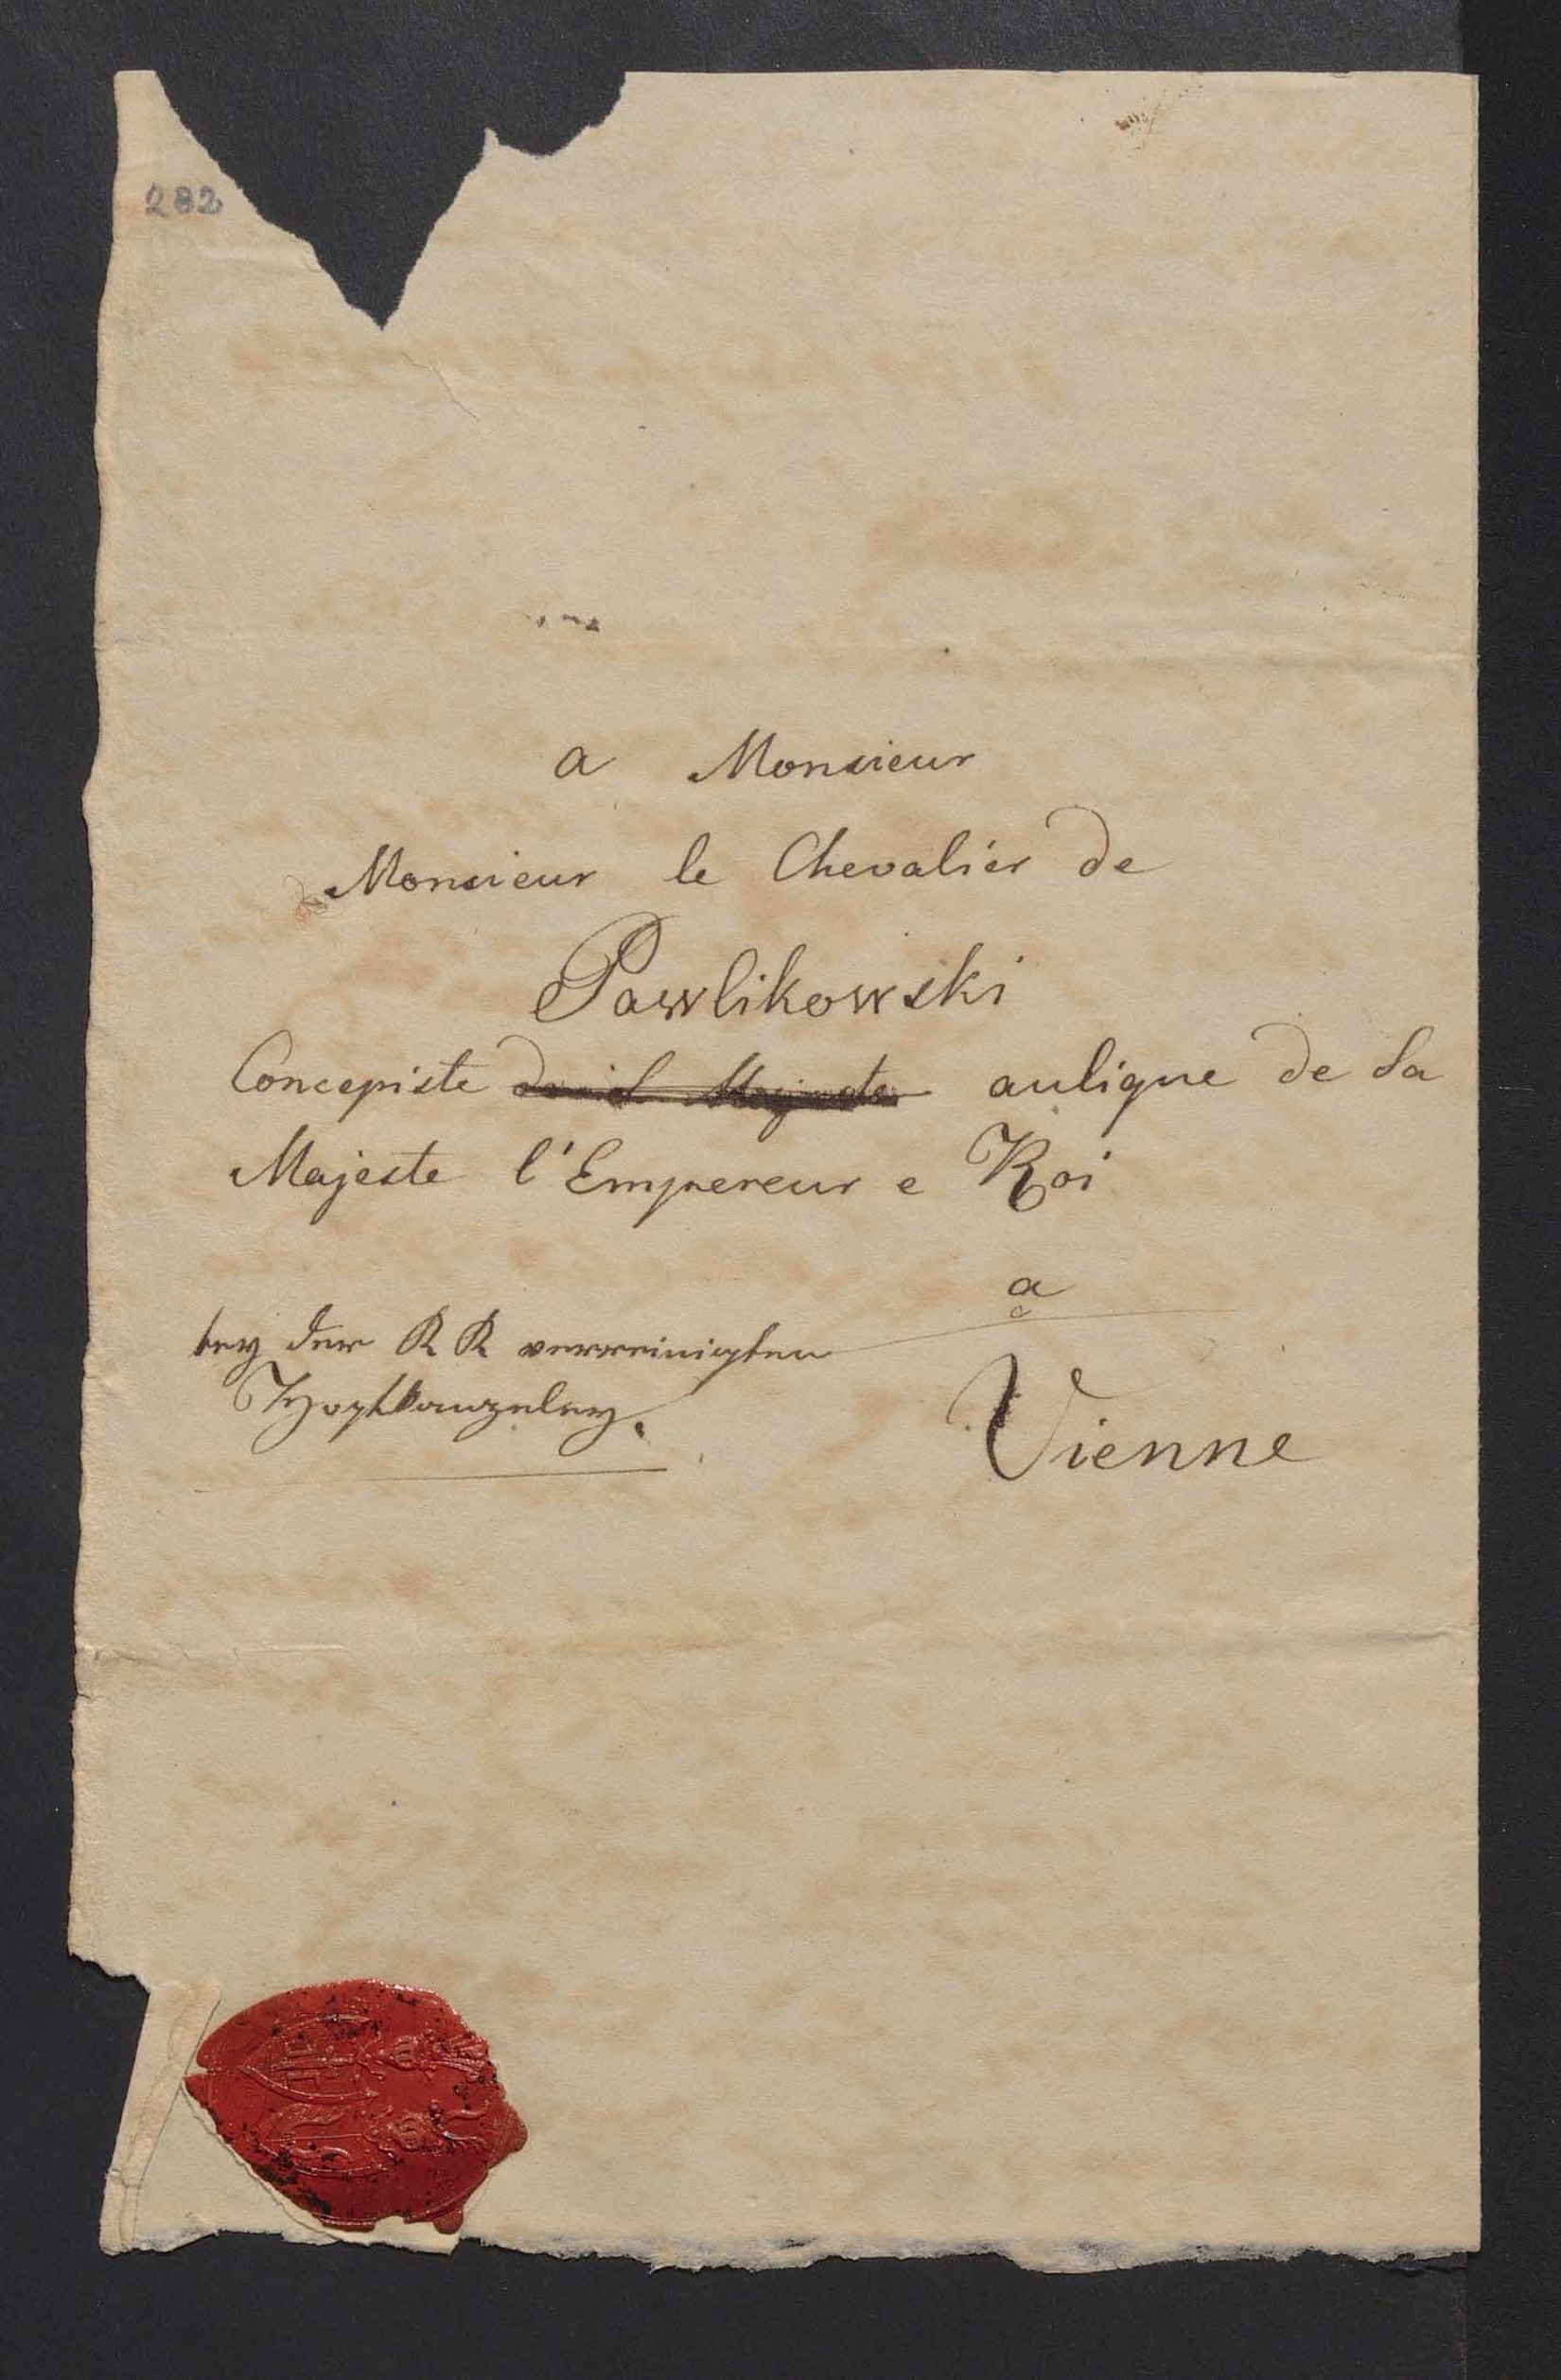 282
a Monsieur
Monsieur le Chevalier de
Pawlikowski
Concepiste aulique de Sa
Majeste l'Empereur e Roi
a
bey der KK vereinigten
Hofkanzeley.
Vienne